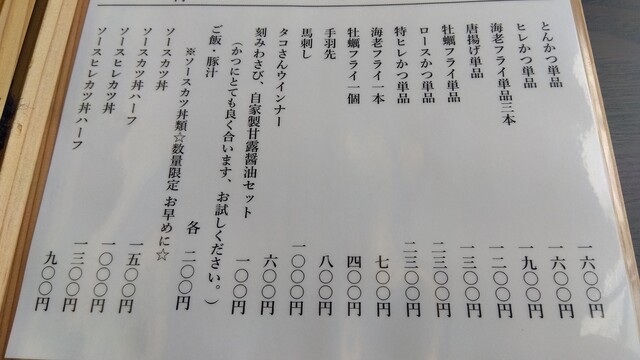 とんかつ単品 一六〇〇円
ヒレかつ単品 一六〇〇円
海老フライ単品三本 一九〇〇円
唐揚げ単品 一二〇〇円
牡蠣フライ単品 一三〇〇円
ロースかつ単品 二三〇〇円
特ヒレかつ単品 二三〇〇円
海老フライ一本 七〇〇円
牡蠣フライ一個 四〇〇円
手羽先 八〇〇円
馬刺し 一〇〇〇円
タコさんウインナー 六〇〇円
刻みわさび、自家製甘露醤油セット 一〇〇円
(かつにとても良く合います、お試しください。)
ご飯・豚汁 各 二〇〇円
※ソースカツ丼類☆数量限定 お早めに☆
ソースカツ丼 一五〇〇円
ソースカツ丼ハーフ 一〇〇〇円
ソースヒレカツ丼 一三〇〇円
ソースヒレカツ丼ハーフ 九〇〇円